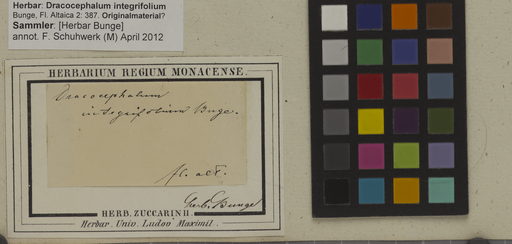 Herbar: Dracocephalum integrifolium
Bunge, Fl. Altaica 2: 387. Originalmaterial?
Sammler: [Herbar Bunge]
annot. F. Schuhwerk (M) April 2012
HERBARIUM REGIUM MONACENSE.
Dracocephalum
integrifolium Bnge.
fl. alt.
Herb. Bunge
HERB. ZUCCARINII.
Herbar. Univ. Ludov. Maximil.